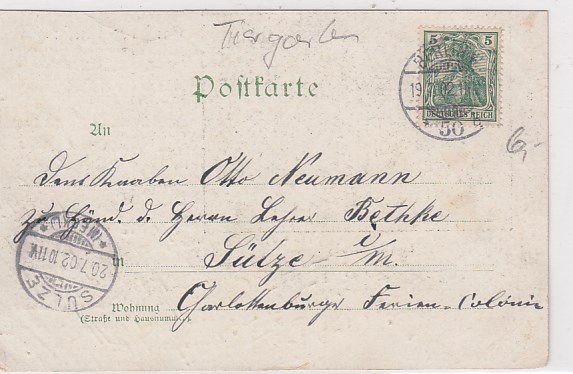 Tiergarten
5 5
DEUTSCHES REICH
BERLIN
19 7 02
50
Postkarte
6,-
An
Dem Knaben Otto Neumann
zu Händ. d. Herrn Lehrer Bethke
in Sülze i/M.
SÜLZE
20.7.02.10-11V.
* (MECKL) *
Wohnung Charlottenburger Ferien-Colonie
(Straße und Hausnummer)